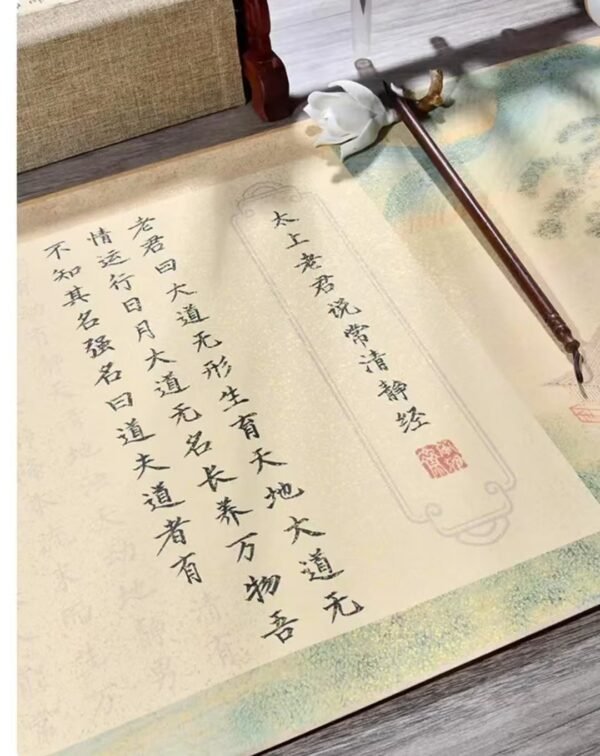 太上老君说常清静经
老君曰大道无形生育天地大道无
情运行日月大道无名长养万物吾
不知其名强名曰道夫道者有